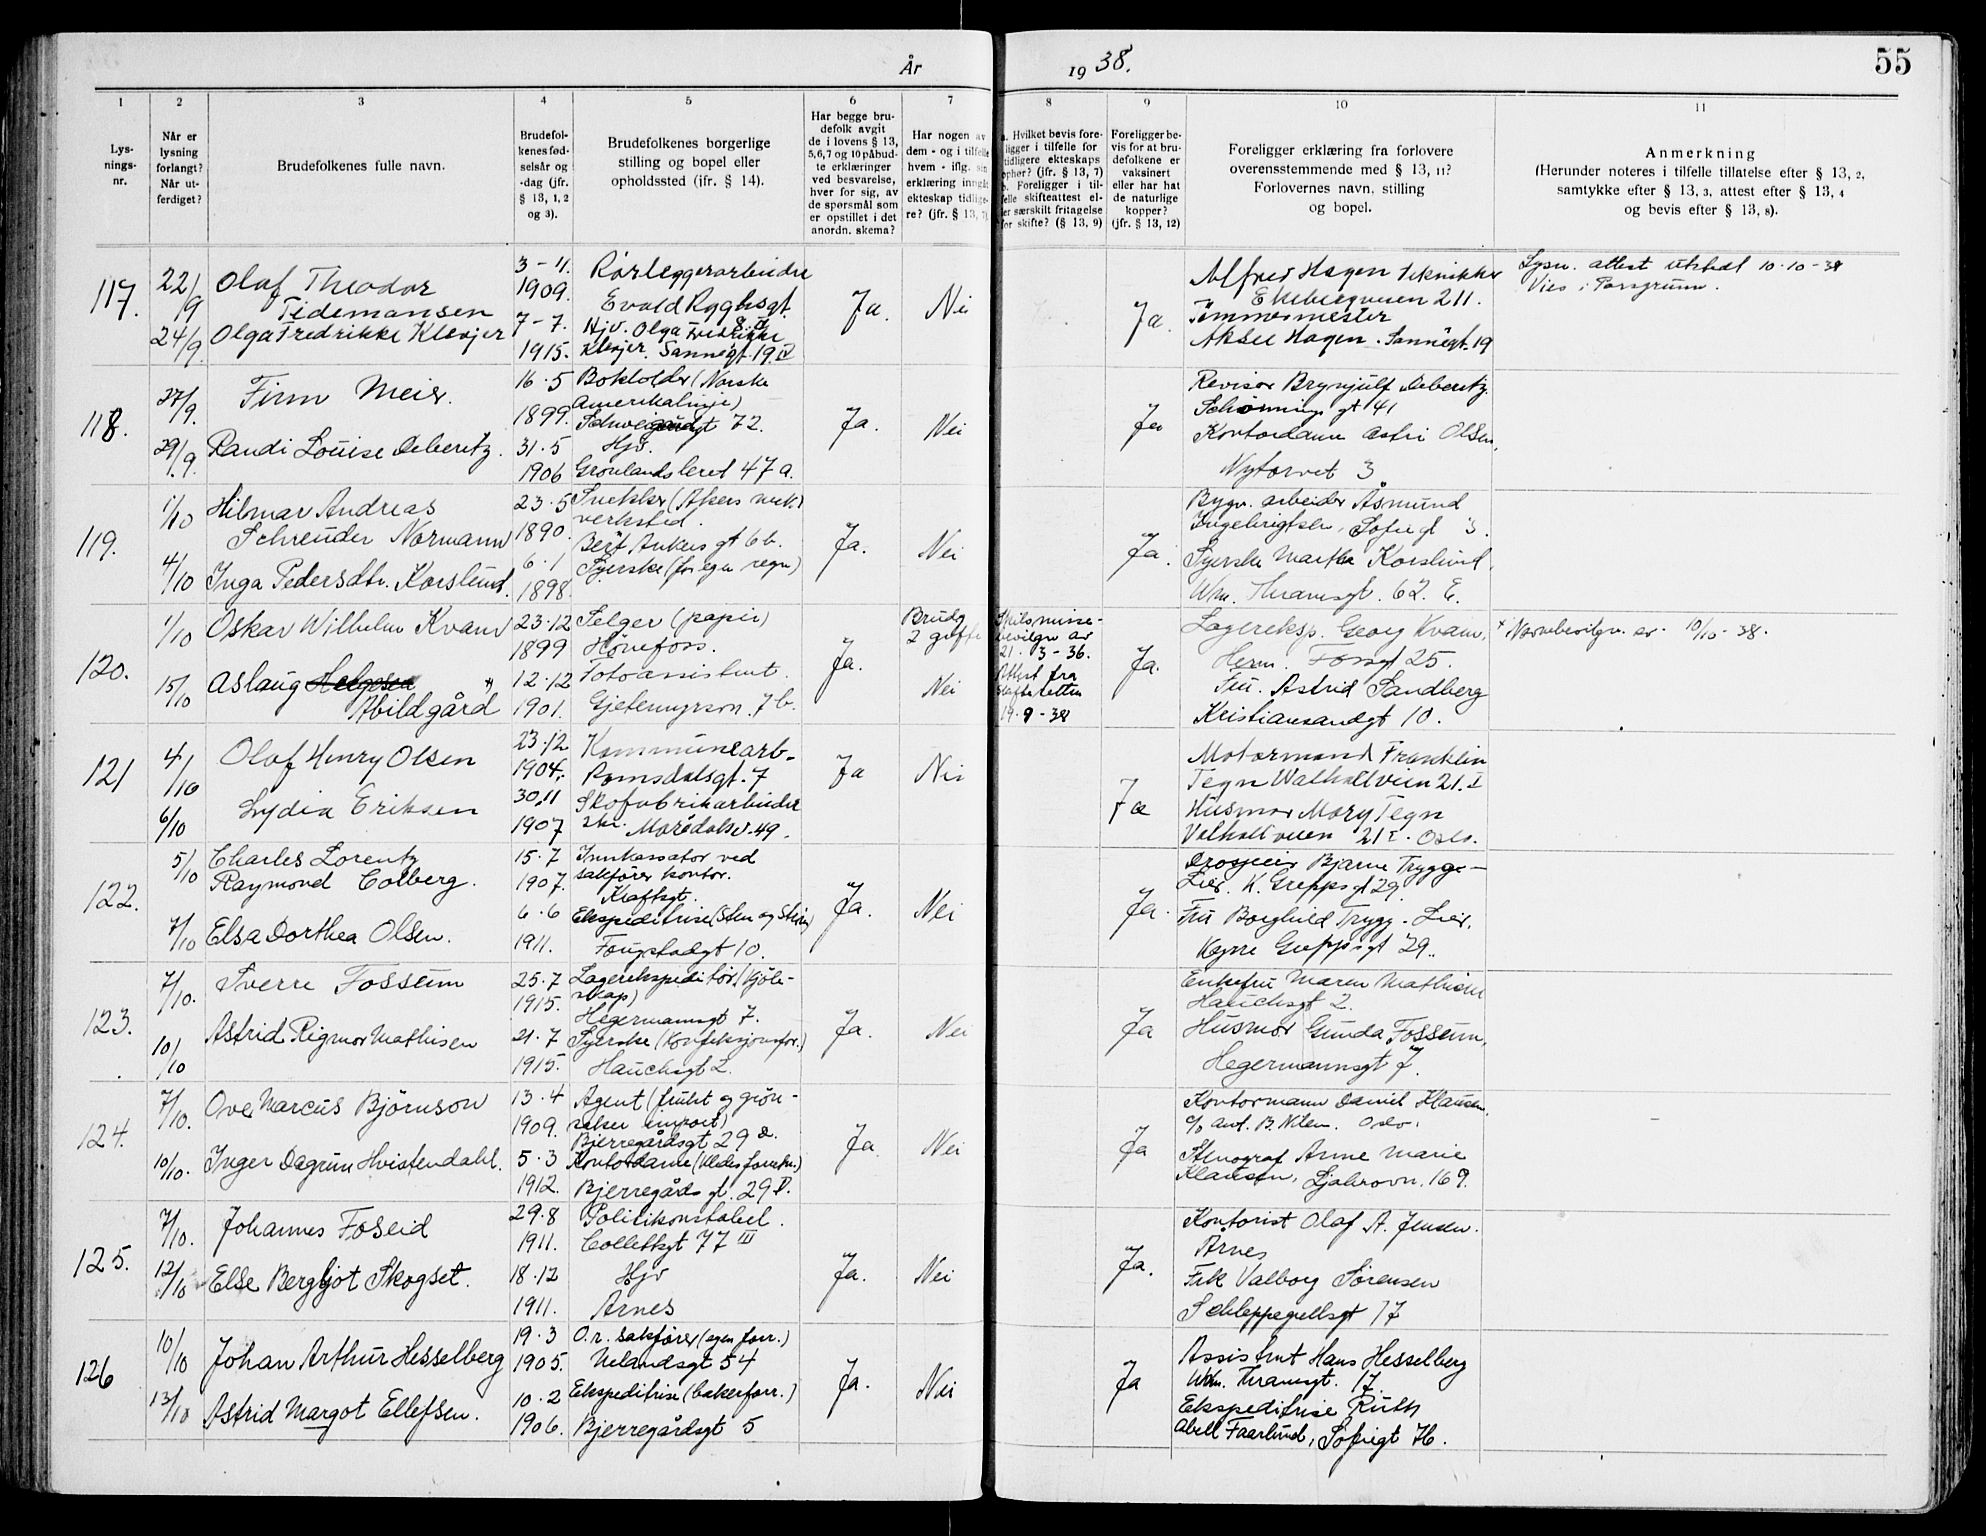 År 1938. 55
1 2 3 4 5 6 7 8 9 10 11
Lysningsnr.
Når er lysning forlangt? Når utferdiget?
Brudefolkenes fulle navn.
Brudefolkenes fødselsår og -dag (jfr. § 13, 1, 2 og 3).
Brudefolkenes borgerlige stilling og bopel eller opholdssted (jfr. § 14).
Har begge brudefolk avgit de i lovens § 13, 5, 6, 7 og 10 påbudte erklæringer ved besvarelse, hver for sig, av de spørsmål som er opstillet i det anordn. skema?
Har nogen av dem - og i tilfelle hvem - iflg. sin erklæring inngått ekteskap tidligere? (jfr. § 13, 7)
a. Hvilket bevis foreligger i tilfelle for tidligere ekteskaps ophør? (jfr. § 13, 7)
b. Foreligger i tilfelle skifteattest eller særskilt fritagelse for skifte? (§ 13, 9)
Foreligger bevis for at brudefolkene er vaksinert eller har hat de naturlige kopper? (jfr. § 13, 12)
Foreligger erklæring fra forlovere overensstemmende med § 13, 11? Forlovernes navn, stilling og bopel.
Anmerkning
(Herunder noteres i tilfelle tillatelse efter § 13, 2, samtykke efter § 13, 3, attest efter § 13, 4 og bevis efter § 13, 8).
117. 22/9 24/9
Olaf Theodor
Tidemansen
Olga Fredrikke Klevjer
3-11. 1909.
7-7. 1915.
Rørleggerarbeider
Evald Ryghsgt.
Hjv. Olga Fredrikke
Klevjer. Sannergt. 19 IV
Ja. Nei Ja.
Alfred Hagen Tekniker
Ekebergveien 211.
Tømmermester
Aksel Hagen. Sannergt. 19
Lysn. attest utstedt 10-10-38
Vies i Porsgrunn.
118. 27/9. 29/9.
Finn Meier.
Randi Louise Deberitz.
16.5 1899.
31.5 1906
Bokholder (Norske
Amerikalinje)
Schweigaardsgt 72.
Hjv.
Grønlandsleret 47 a.
Ja. Nei Ja
Revisor Brynjulf Deberitz.
Schønnings gt 41
Kontordame Astri Olsen,
Nytorvet 3
119. 1/10 4/10
Hilmar Andreas
Schreuder Normann
Inga Pedersdtr. Korslund.
23.5 1890.
6.1 1898.
Snekker (Akers mek.)
verksted.
Bert Ankers gt 6 b.
Syerske (for egen regn)
Ja. Nei Ja.
Bygn. arbeider Åsmund
Ingebrigtsen, Sofie gt 3.
Syerske Martha Korslund,
Wm. Thranesgt. 62. E.
120. 1/10 15/10
Oskar Wilhelm Kvam
Aslaug Helgesen *)
Abildgård
23.12 1899
12.12 1901.
Selger (papir)
Hønefoss.
Fotoassistent.
Gjetemyrsvn. 7 b.
Ja.
Brudg
2 gifte
Nei
Skilsmisse-
bevilgn av
21.3-36.
Attest fra
skifteretten
19.9-38
Ja.
Lagereksp. Georg Kvam,
Herm. Fossgt 25.
Fru. Astrid Sandberg
Kristiansandgt 10.
* Navnebevilgn. av. 10/10-38.
121 4/10 6/10
Olaf Henry Olsen
Lydia Eriksen
23.12 1904.
30.11 1907
Kommunearb.
Romsdalsgt. 7
Skofabrikarbeider
ske. Maridalsv. 49.
Ja Nei Ja
Motormand Franklin
Tegn Walhallveien 21. I
Husmor Mary Tegn
Valhallveien 21 I. Oslo.
122. 5/10 7/10
Charles Lorentz
Raymond Colberg.
Elsa Dorthea Olsen.
15.7 1907.
6.6 1911.
Innkassator ved
sakfører kontor.
Kraftsgt.
Ekspeditrise (Sten og Strøm)
Fougstadgt 10.
Ja. Nei Ja.
Drosjeeier Bjarne Trygge-
Lier. K. Greppsgt 29.
Fru Borghild Trygg-Lier,
Kyrre Greppsgt 29.
123. 7/10. 10/10
Sverre Fossum
Astrid Rigmor Mathisen
25.7 1915.
21.7 1915.
Lagerekspeditør (Kjøle-
skap)
Hegermannsgt 7.
Syerske (Konfeksjonsfor.)
Hauchsgt 2.
Ja. Nei Ja
Enkefru Maren Mathisen
Hauchsgt 2.
Husmor Gunda Fossum,
Hegermannsgt 7.
124. 7/10. 10/10.
Ove Marcus Bjørnson
Inger Dagrun Hvistendahl.
13.4 1909.
5.3 1912.
Agent (frukt og grøn-
saker import)
Bjerregårdsgt 29 d.
Kontordame (Kledesforretn.)
Bjerregårds gt. 29 V.
Ja Nei Ja
Kontormann Daniel Klausen,
c/o Ant. B. Nilsen. Oslo.
Stenograf Anne Marie
Klausen, Ljabrovn. 169.
125. 7/10. 12/10
Johannes Foseid
Else Bergljot Skogset.
29.8 1911.
18.12 1911.
Politikonstabel.
Collettsgt 77 III
Hjv
Årnes
Ja. Nei Ja.
Kontorist Olaf A. Jensen.
Årnes
Frk Valborg Sørensen
Schleppegrellsgt 17
126 10/10 13/10
Johan Arthur Hesselberg
Astrid Margot Ellefsen.
19.3 1905.
10.2 1906.
O.r. sakfører (egen forr.)
Uelandsgt 54
Ekspeditrise (bakerforr.)
Bjerregårdsgt 5
Ja. Nei Ja
Assistent Hans Hesselberg
Wm. Thranesgt. 17.
Ekspeditrise Ruth
Abell Faarlund, Sofiegt 76.